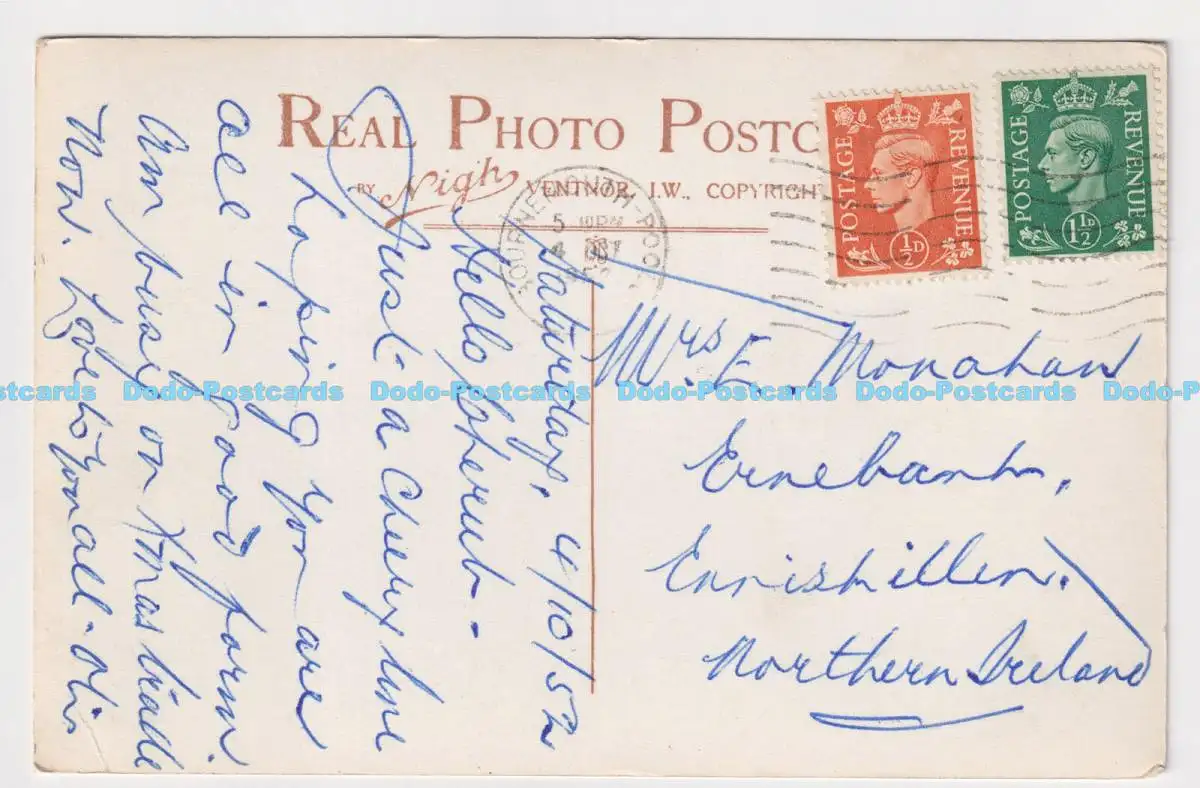 REAL PHOTO POSTC
BY Nigh VENTNOR, I.W., COPYRIGHT
BOURNEMOUTH-POOLE
5
4 OCT
POSTAGE REVENUE
½D
POSTAGE REVENUE
1½D
Saturday. 4/10/52
Hello Cherub -
Just a Cheery line
hoping you are
all in good form.
Am busy on Xmas trade
Now. Love to you all -
Mrs. E. Monahan
Ernebank,
Enniskillen.
Northern Ireland
stcards Dodo-Postcards Dodo-Postcards Dodo-Postcards Dodo-Postcards Dodo-Postcards Dodo-Postcards Dodo-Postcards Dodo-Postcards Dodo-Postca